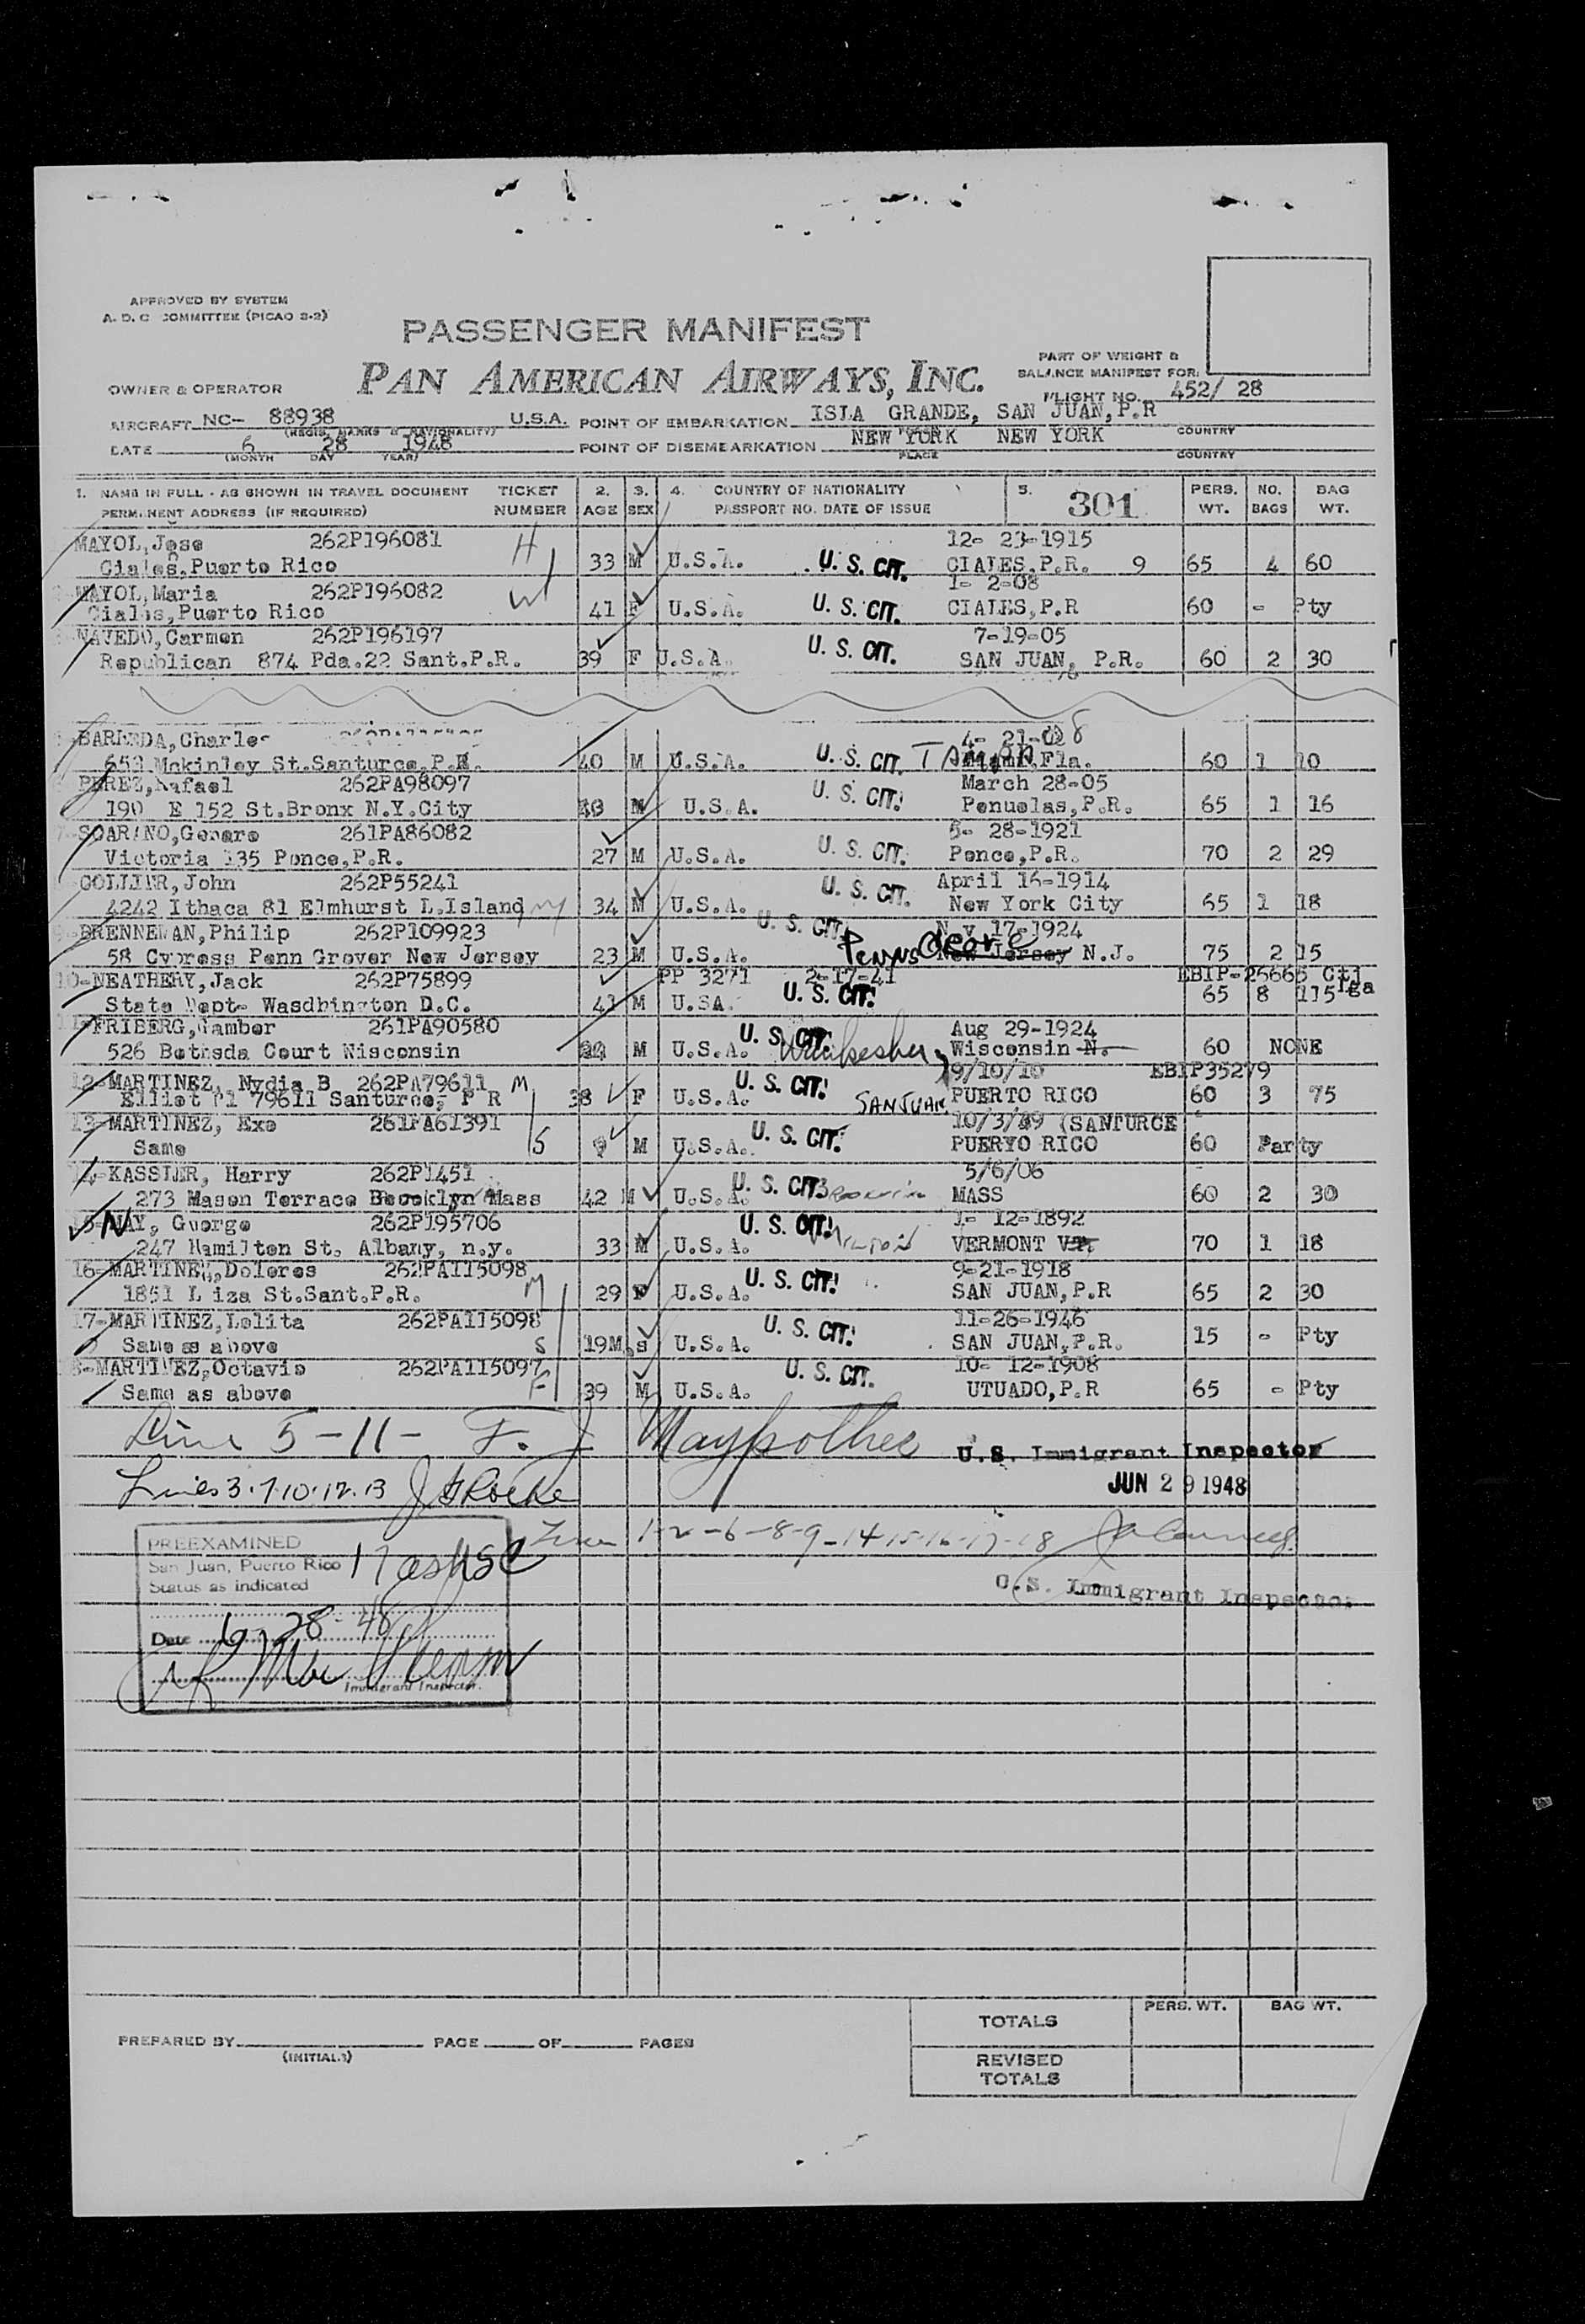 APPROVED BY SYSTEM
A. D. C. COMMITTEE (PICAO 2-2)
PASSENGER MANIFEST
PART OF WEIGHT &
BALANCE MANIFEST FOR:
OWNER & OPERATOR PAN AMERICAN AIRWAYS, INC.
FLIGHT NO. 452/ 28
AIRCRAFT NC- 88938 U.S.A. POINT OF EMBARKATION ISLA GRANDE, SAN JUAN, P.R
(REGIS. MARKS & NATIONALITY) PLACE COUNTRY
DATE 6 28 1948 POINT OF DISEMBARKATION NEW YORK NEW YORK
(MONTH DAY YEAR) PLACE COUNTRY
1. NAME IN FULL - AS SHOWN IN TRAVEL DOCUMENT TICKET 2. 3. 4. COUNTRY OF NATIONALITY 5. 301 PERS. NO. BAG
PERMANENT ADDRESS (IF REQUIRED) NUMBER AGE SEX PASSPORT NO. DATE OF ISSUE WT. BAGS WT.
MAYOL, Jose 262P196081 H 12- 23-1915
Ciales, Puerto Rico 33 M U.S.A. U. S. CIT. CIALES, P.R. 9 65 4 60
MAYOL, Maria 262P196082 W 1- 2-08
Ciales, Puerto Rico 41 F U.S.A. U. S. CIT. CIALES, P.R 60 - Pty
Carmen 262P196197 7-19-05
Republican 874 Pda.22 Sant.P.R. 39 F U.S.A. U. S. CIT. SAN JUAN, P.R. 60 2 30
Charles 4- 21-08
653 Mckinley St.Santurce, P.R. 40 M U.S.A. U. S. CIT. TAMPA Fla. 60 1 10
PEREZ, Rafael 262PA98097 March 28-05
190 E 152 St.Bronx N.Y.City M U.S.A. U. S. CIT. Penuelas, P.R. 65 1 16
Genaro 261PA86082 5- 28-1921
Victoria 135 Ponce, P.R. 27 M U.S.A. U. S. CIT. Ponce, P.R. 70 2 29
COLLIER, John 262P55241 April 16-1914
4242 Ithaca 81 Elmhurst L.Island M 34 M U.S.A. U. S. CIT. New York City 65 1 18
BRENNEMAN, Philip 262P109923 Nov 17-1924
58 Cypress Penn Grover New Jersey 23 M U.S.A. U. S. CIT. Penns Grove New Jersey N.J. 75 2 15
10-NEATHERY, Jack 262P75899 PP 3271 2-17-41 EBIP-26665 Ctl
State Dept- Wasdhington D.C. 41 M U.SA. U. S. CIT. 65 8 115 Lga
FRIBERG, Gamber 261PA90580 Aug 29-1924
526 Bethsda Court Wisconsin M U.S.A. U. S. CIT. Wisconsin N. 60 NONE
12-MARTINEZ, Nydia B 262PA79611 M 9/10/10 EBIP35279
Elliot Pl 79611 Santurce, P R 38 F U.S.A. U. S. CIT. SAN JUAN PUERTO RICO 60 3 75
13-MARTINEZ, Exe 261PA61391 10/3/ (SANTURCE
Same S 9 M U.S.A. U. S. CIT. PUERTO RICO 60 Party
KASSLER, Harry 262P1451 5/6/06
273 Mason Terrace Mass 42 M U.S.A. U. S. CIT. MASS 60 2 30
NAY, George 262P195706 1- 12-1892
247 Hamilton St. Albany, n.y. 33 M U.S.A. U. S. CIT. VERMONT Vt. 70 1 18
16-MARTINEZ, Dolores 262PA115098 M 9-21-1918
1851 L iza St.Sant.P.R. 29 F U.S.A. U. S. CIT. SAN JUAN, P.R 65 2 30
17-MARTINEZ, Lolita 262PA115098 11-26-1946
Same as above S 19M.s U.S.A. U. S. CIT. SAN JUAN, P.R. 15 - Pty
MARTINEZ, Octavio 262PA115097 10- 12-1908
Same as above F 39 M U.S.A. U. S. CIT. UTUADO, P.R 65 - Pty
Line 5-11- F. J. Maypother U.S. Immigrant Inspector
Lines 3.7.10.12.13 JUN 29 1948
Lines 1-2-6-8-9-14-15-16-17-18
U.S. Immigrant Inspector
PREEXAMINED
San Juan, Puerto Rico 17 as USC
Status as indicated
Date 6-28-48
Immigrant Inspector.
TOTALS PERS. WT. BAG WT.
PREPARED BY PAGE OF PAGES
(INITIALS)
REVISED
TOTALS